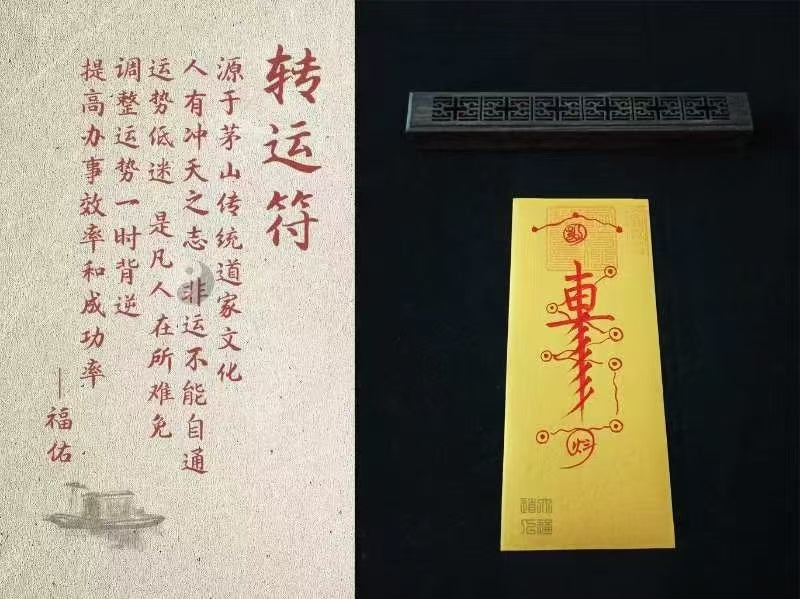 转运符
源于茅山传统道家文化
人有冲天之志 非运不能自通
运势低迷 是凡人在所难免
调整运势一时背逆
提高办事效率和成功率
——福佑